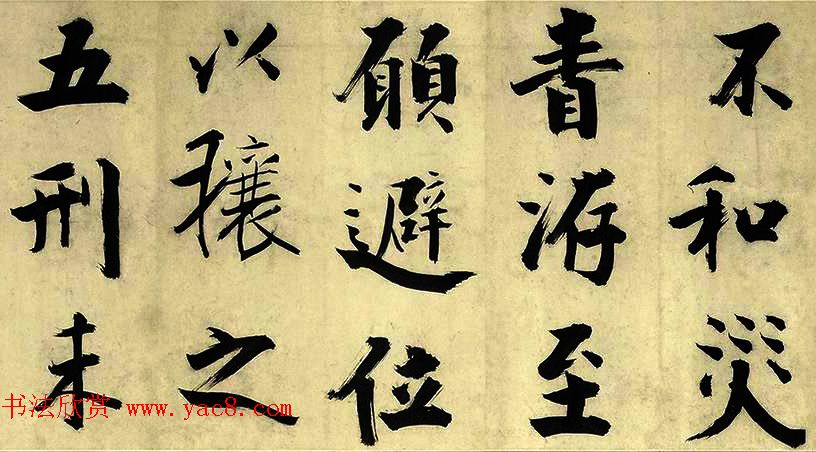 不和災
眚洊至
願避位
以攘之
五刑未
书法欣赏 www.yac8.com